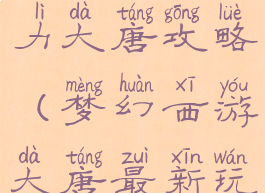 lì dà táng gōng lüè
力大唐攻略
mèng huàn xī yóu
(梦幻西游
dà táng zuì xīn wán
大唐最新玩